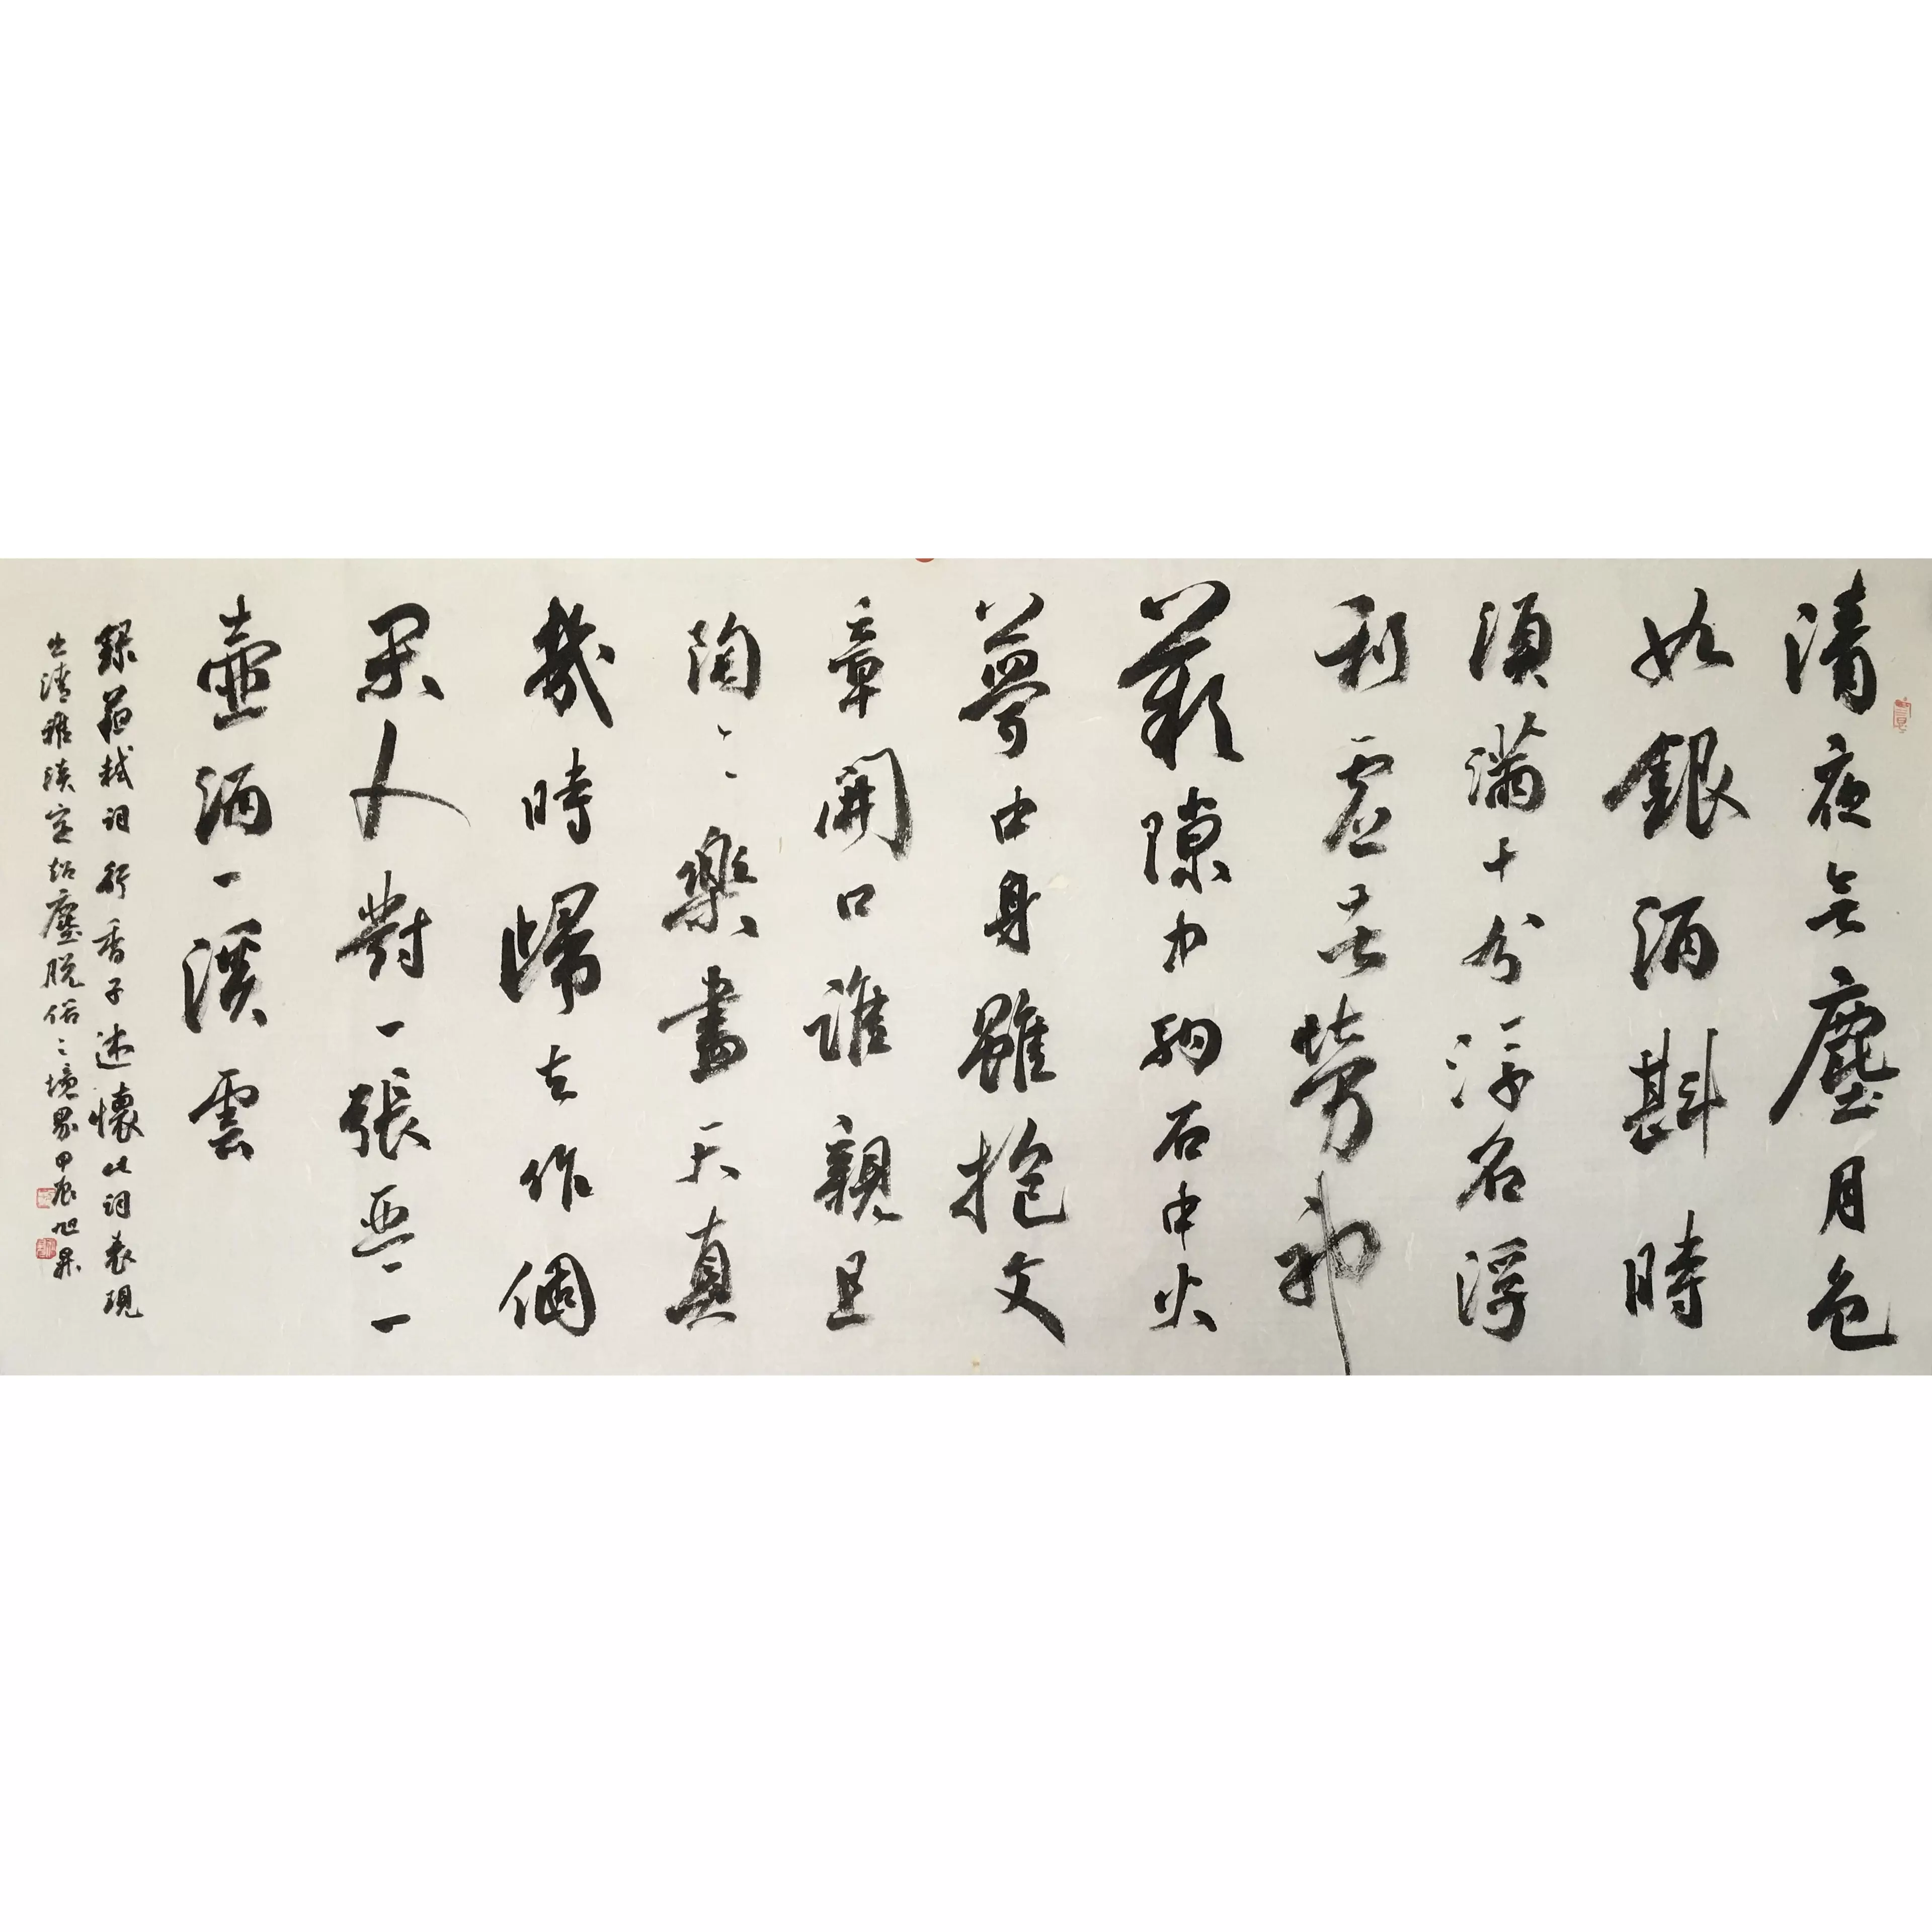 清夜無塵月色
如銀酒斟時
須滿十分浮名浮
利虛苦勞神
歎隙中駒石中火
夢中身雖抱文
章開口誰親且
陶〻樂盡天真
幾時歸去作個
閑人對一張琴一
壺酒一溪雲
錄蘇軾詞行香子述懷此詞表現
出清雅淡定超塵脱俗之境界甲辰旭昇